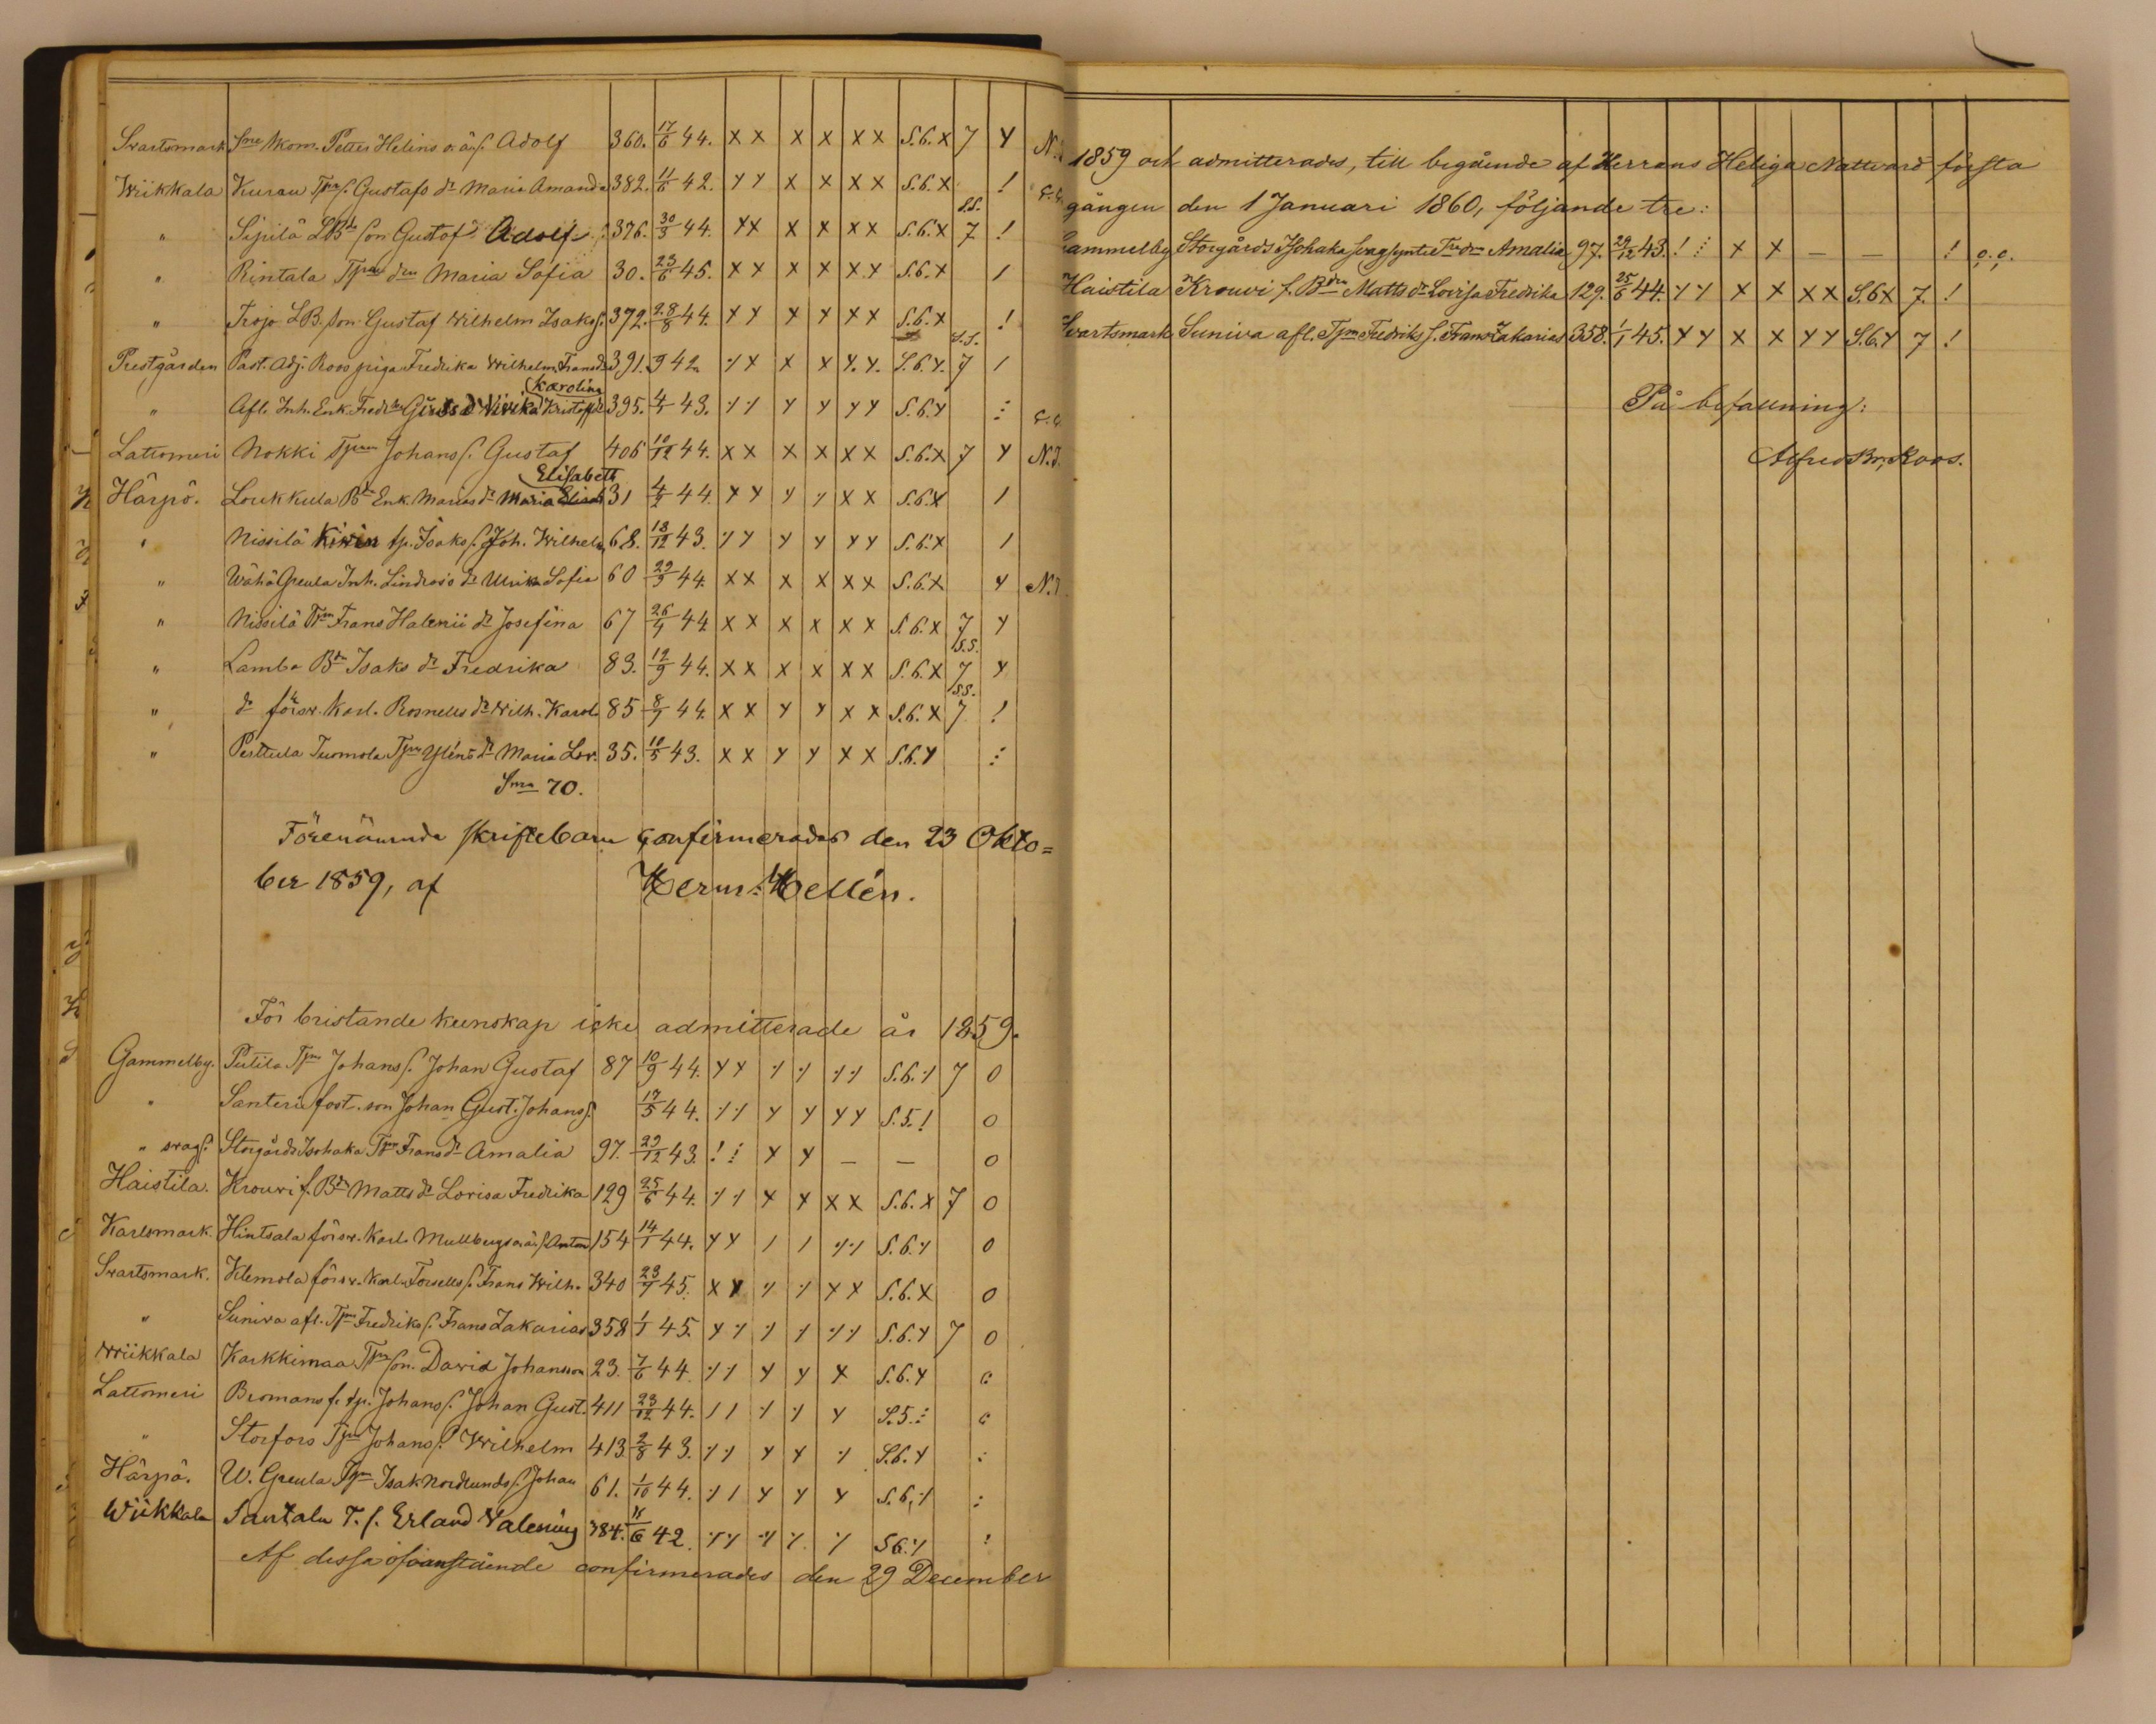 Svartsmark Sme Kom. Petter Helins o. äs. Adolf 360. 17/6 44. X X X X X X S.6.X 7 Y N.
Wiikkala Kurau Tpm s. Gustafs dr Maria Amanda 382. 11/6 42. Y Y X X X X S.6.X !
" Sipilä LBds son Gustaf Adolf 376. 30/3 44. Y X X X X X S.6.X 7 !
" Rintala Tpms dtr Maria Sofia 30. 23/6 45. X X X X X X S.6.X 1
" Trojo LB. son Gustaf Wilhelm Isaks. 372. 28/8 44. X Y X Y X X S.6.X !
Prestgården Past. Adj. Roos piga Fredrika Wilhelm. Fransdr 391. 9 42
Karolina
" Afl. Inh. Enk. Vivika Kristoffdr 395. 4/1 43. S.6.Y
Lattomeri Nokki Tpm Johans s. Gustaf 406 10/12 44. X X X X X X S.6.X 7 Y N.
Elisabeth
Härpö. Loukkula Bds Enk. Marias dr Maria 31 4/2 44. S.6.X 1
" Nissilä Kivin tp. Isaks s. Joh. Wilhelm 68. 18/12 43. S.6.X 1
" Wähä Greula Inh. Lindroos dr Ulrika Sofia 60 29/9 44. X X X X X X S.6.X Y N.
" Nissilä Tpm Frans Halenii dr Josefina 67 26/9 44 X X X X X X S.6.X 7 Y
" Lamba Bds Isaks dr Fredrika 83. 12/9 44. X X X X X X S.6.X 7 Y
" do försv. Karl. Rosnells dr Wilh. Karol. 85 8/7 44. X X Y Y X X S.6.X 7 !
" Perttula Tuomola Tpm Yléns dr Maria Lov. 35. 10/5 43. X X Y Y X X S.6.Y
Sma 70.
Förenämnda skriftebarn confirmerades den 23 Okto=
ber 1859, af Herm: Hellén.
För bristande kunskap icke admitterade år 1859.
Gammelby. Peltila Tpm Johans s. Johan Gustaf 87 10/9 44. S.6. 7 0
" Santeri fost. son Johan Gust. Johans s. 17/5 44. S.5.! 0
" svags. Storgårds Isohaka Tpm Frans dr Amalia 97. 29/12 43. ! Y Y — — 0
Haistila. Krouvi f. Bds Matts dr Lovisa Fredrika 129 25/6 44. S.6.X 7 0
Karlsmark. Hintsala försv. Karl. Mullbergs o. äs. Anton 154 14/1 44. S.6. 0
Svartsmark. Klemola försv. Karl. Forsells s. Frans Wilh. 340 23/7 45. S.6.X 0
" Suniva afl. Tpm Fredriks s. Frans Zakarias 358 1/1 45. S.6.Y 7 0
Wiikkala Karkkimaa Tpm son David Johansson 23. 7/6 44. S.6.Y
Lattomeri Bromans f. tp. Johans s. Johan Gust. 411 23/12 44. S.5.
" Storfors Tpm Johans s. Wilhelm 413 2/8 43. S.6.Y
Härpö. W. Greula Tpm Isak Nordlunds s. Johan 61. 1/10 44. S.6.
Wiikkala Santala T. s. Erland Valenius 384. 11/6 42. S6.
Af dessa ofvanstående confirmerades den 29 December
1859 och admitterades, till begående af Herrans Heliga Nattvard första
gången den 1 Januari 1860, följande tre:
Gammelby Storgårds Isohaka svagsynte Amalia 97. 29/12 43. ! X X — — ! o.o.
Haistila Krouvi f. Bdn Matts dr Lovisa Fredrika 129. 25/6 44. Y Y X X X X S.6X 7. !
Svartsmark Suniva afl. Tpm Fredriks s. Frans Zakarias 358. 1/1 45. Y Y X X Y Y S.6.Y 7 !
På befallning:
Alfred Br. Roos.